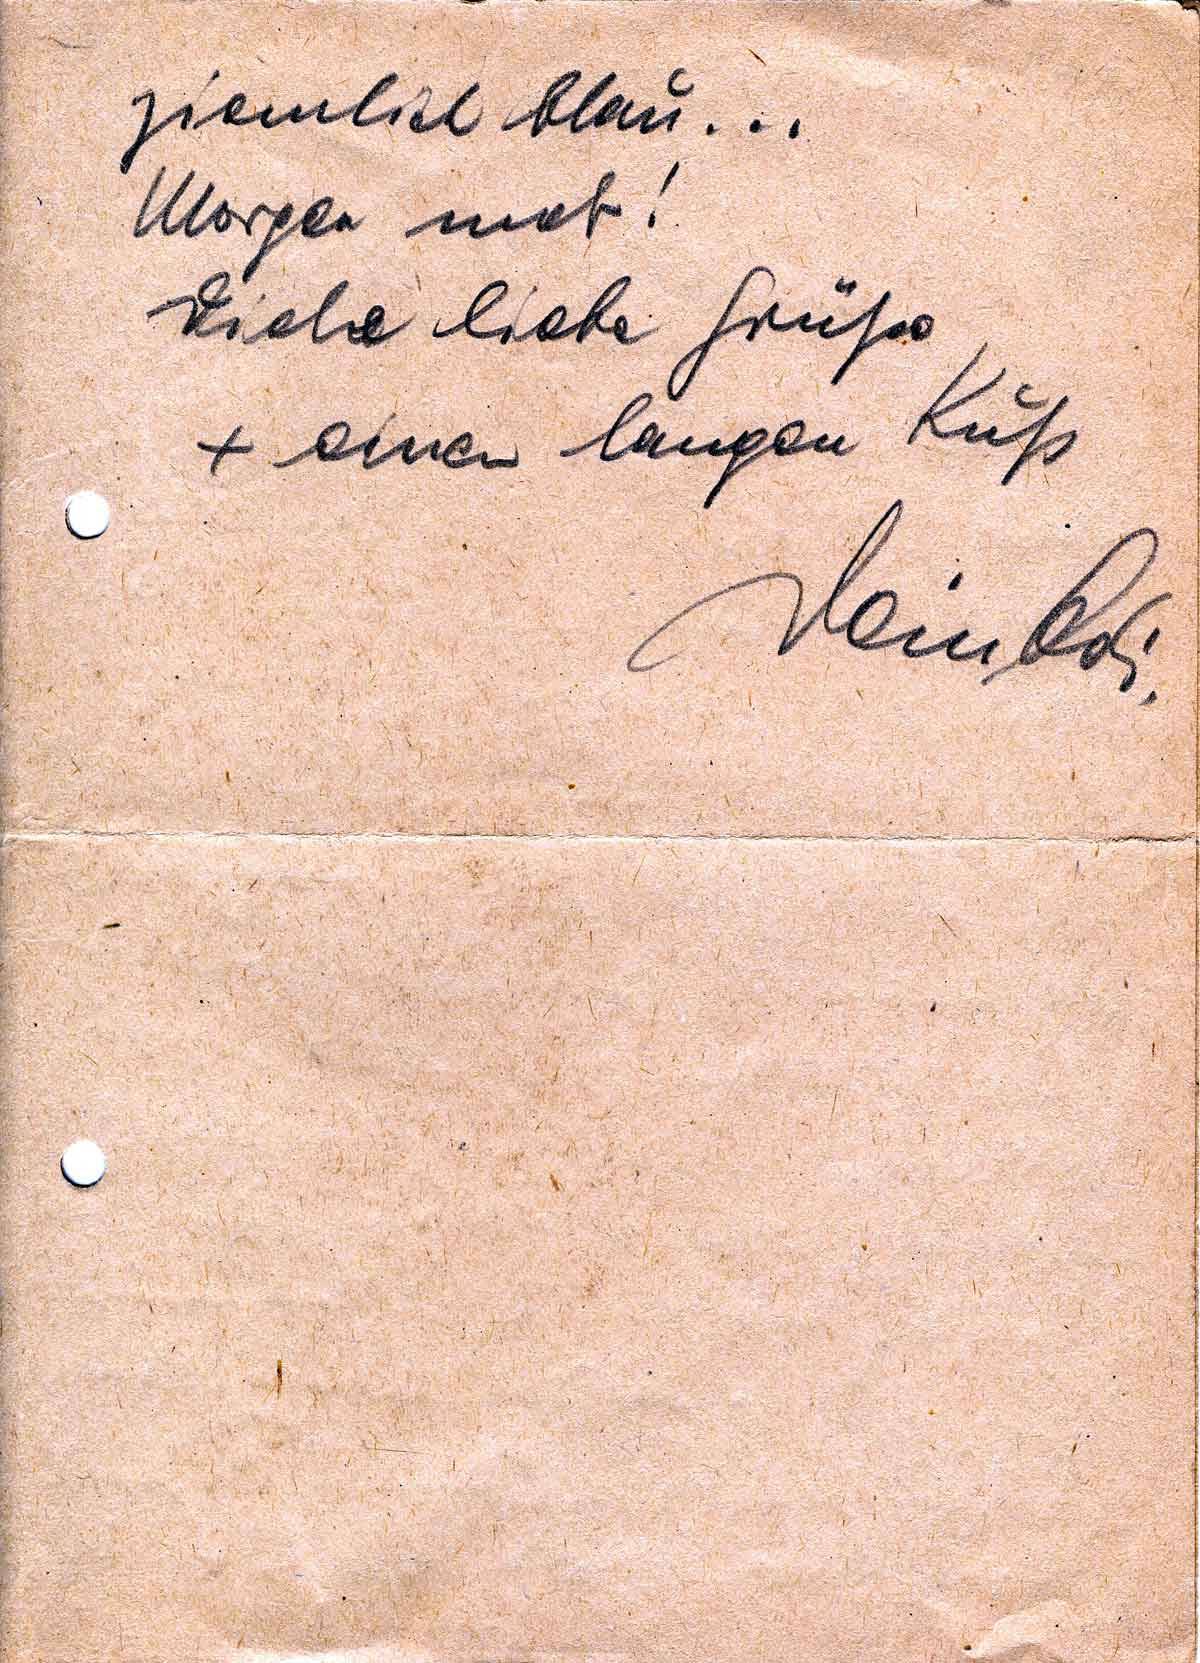 ziemlich blau...
Morgen mehr!
Viele liebe Grüße
+ einen langen Kuß
Dein